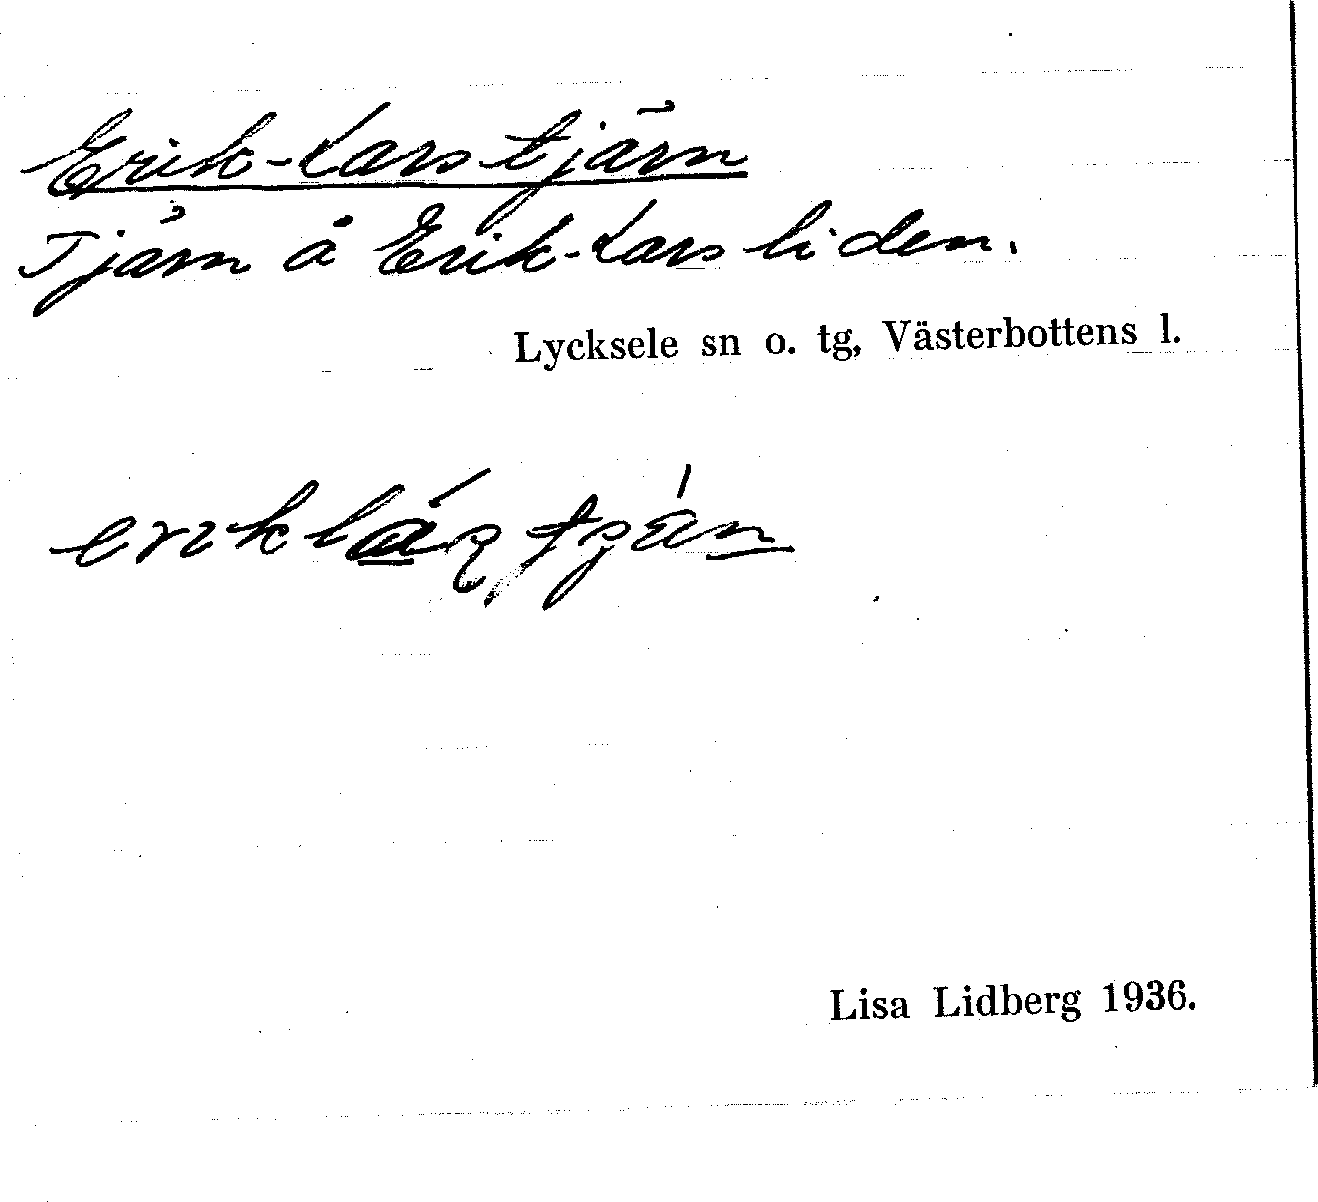 Erik-Larstjärn
Tjärn å Erik-Larsliden.
Lycksele sn o. tg, Västerbottens l.
Lisa Lidberg 1936.